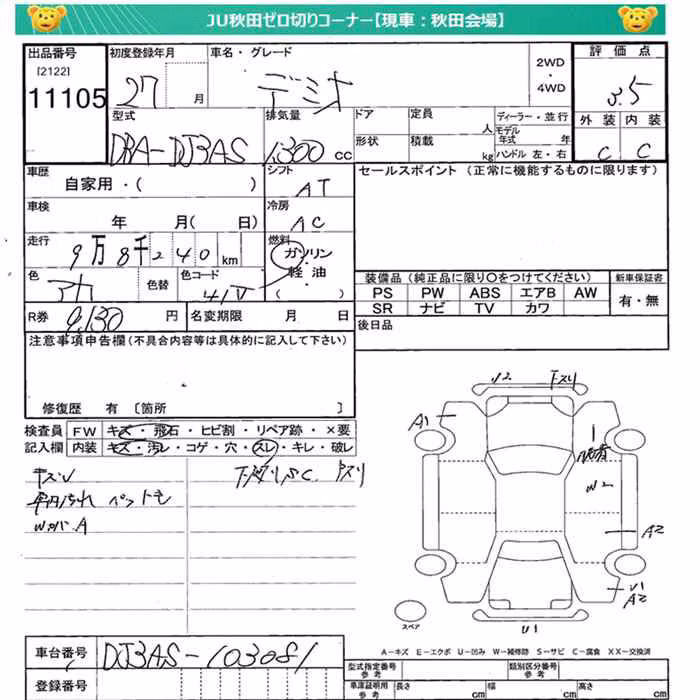 JU秋田ゼロ切りコーナー【現車：秋田会場】
出品番号 [2122] 11105
初度登録年月 27 月
車名・グレード デミオ
2WD・4WD
評価点 3.5
外装 C 内装 C
型式 DBA-DJ3AS
排気量 1,300 cc
ドア 形状
定員 人
積載 kg
ディーラー・並行
モデル年式 年
ハンドル 左・右
車歴 自家用・( )
シフト AT
車検 年 月( 日)
冷房 AC
走行 9万8千240km
燃料 ガソリン・軽油・( )
色 アカ 色替
色コード 41V
R券 9,130 円
名変期限 月 日
セールスポイント(正常に機能するものに限ります)
装備品(純正品に限り〇をつけてください)
PS PW ABS エアB AW
SR ナビ TV カワ
新車保証書 有・無
後日品
注意事項申告欄(不具合内容等は具体的に記入して下さい)
修復歴 有 〔箇所 〕
検査員記入欄
FW キズ・飛石・ヒビ割・リペア跡・×要
内装 キズ・汚レ・コゲ・穴・スレ・キレ・破レ
A
U2 下スリ
A1
W2
A2
U1
A2
U1
スペア
A－キズ E－エクボ U－凹み W－補修跡 S－サビ C－腐食 XX－交換済
車台番号 DJ3AS-103081
登録番号
型式指定番号 参考
類別区分番号 参考
車庫証明用 参考 長さ cm 幅 cm 高さ cm